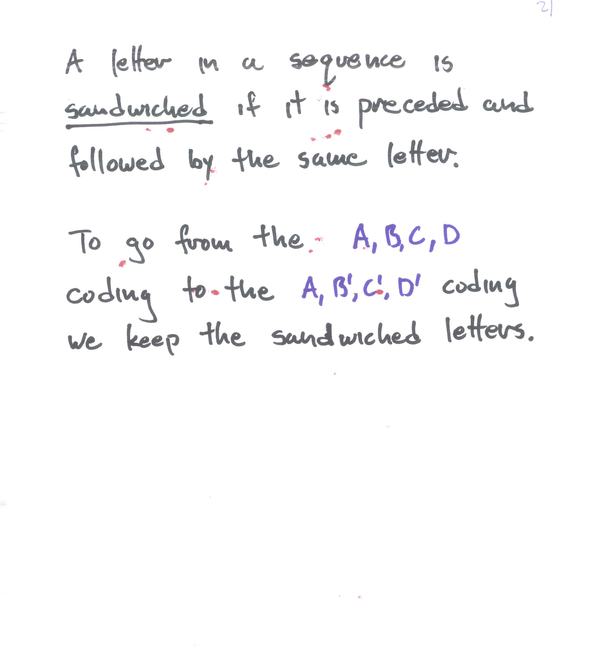 2)
A letter in a sequence is
sandwiched if it is preceded and
followed by the same letter.
To go from the A, B, C, D
coding to the A, B', C', D' coding
we keep the sandwiched letters.